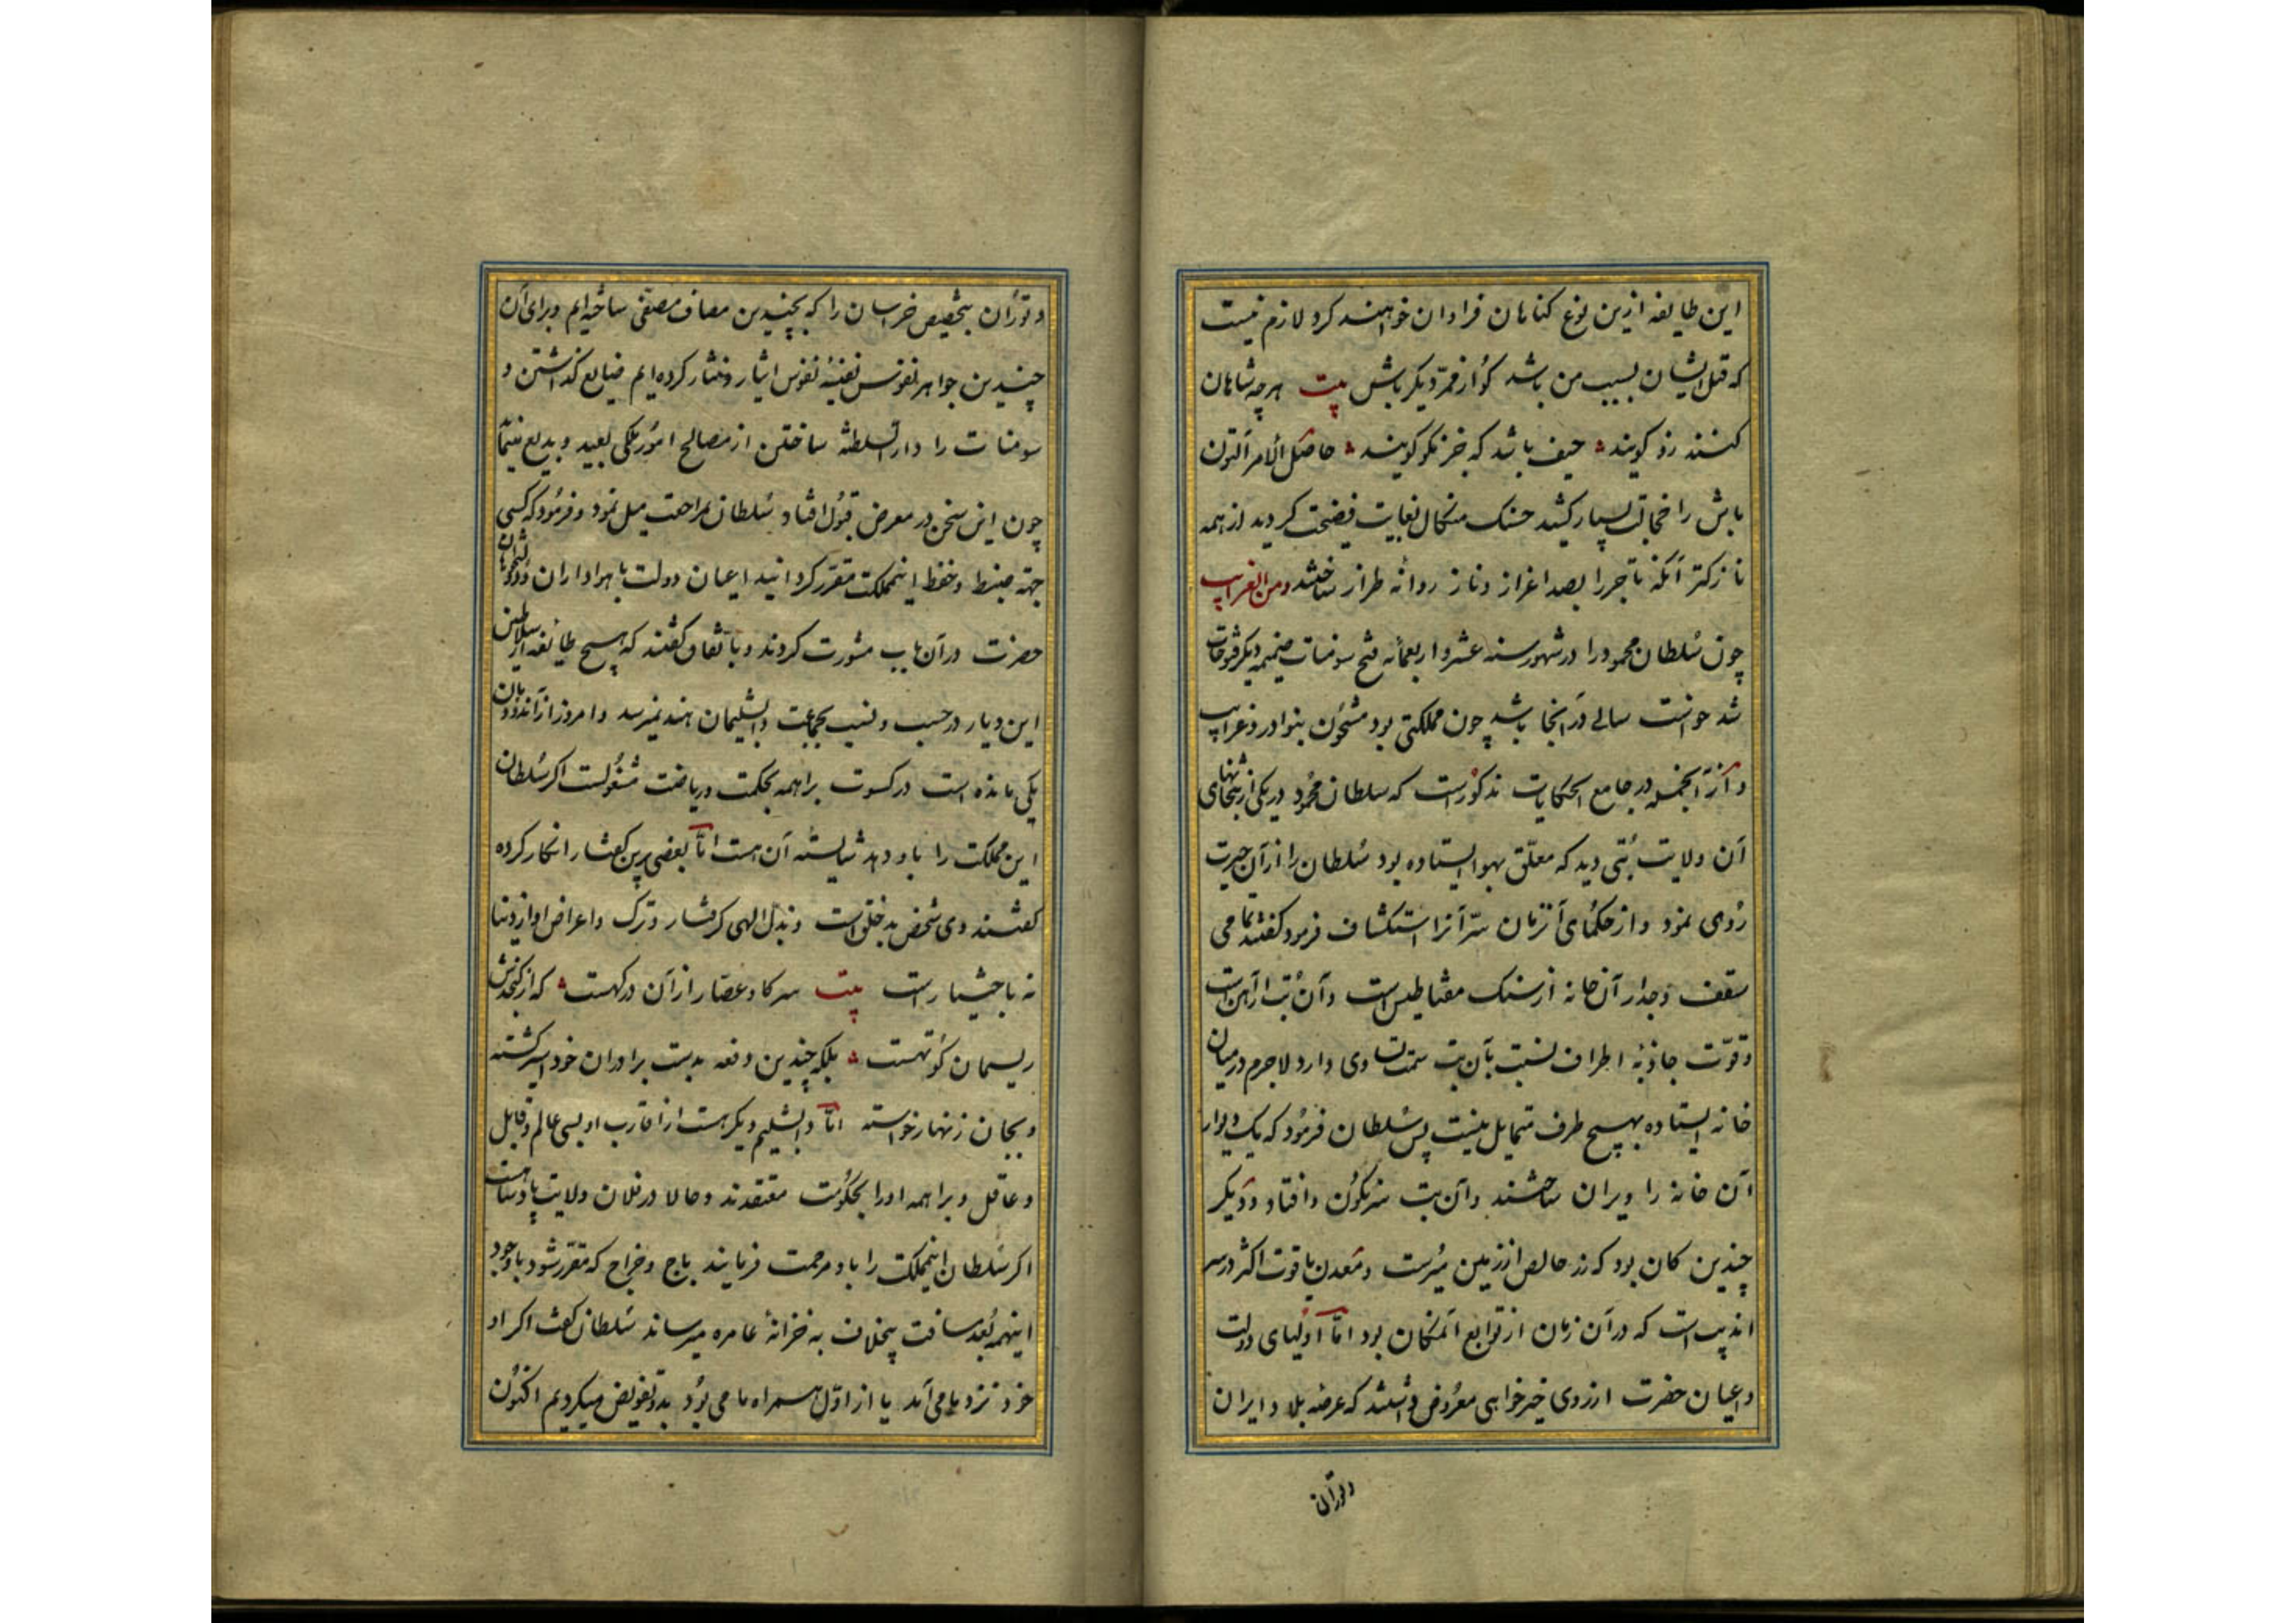 این طایفه ازین نوع کناهان فراوان خواهند کرد لازم نیست
که قتل ایشان بسبب من باشد کو از ممرّ دیکر باش بیت هرچه شاهان
کنند زو کویند حیف باشد که جز نکو کویند حاصل الامر التون
باش را خجالت بسیار کشید حسنک منکال بغایت فضیحت کردید از همه
نازکتر آنکه تاجر را بصد اعزاز و ناز روانه طراز ساختند ومن الغرایب
چون سُلطان محمود را در شهور سنه عشر و اربعمائه فتح سومنات ضمیمه دیکر فتوحات
شد خواست سالی در آنجا باشد چون مملکتی بود مشحون بنوادر و غرایب
و از آنجمله در جامع الحکایات مذکورست که سلطان محمود در یکی از بتخانهای
آن ولایت بُتی دید که معلّق بهوا ایستاده بود سُلطان را از آن حیرت
رُوی نمود و از حکمای آنزمان سرّ آنرا استکشاف فرمود کفتند تمامی
سقف و جدار آن خانه از سنک مقناطیس است و آن بُت از آهن است
و قوّت جاذبهٔ اطراف نسبت بآن بت سمت تساوی دارد لاجرم در میان
خانه ایستاده بهیچ طرف متمایل نیست پس سُلطان فرمُود که یک دیوار
آن خانه را ویران ساختند و آن بت سرنکون وافتاد و دیکر
چندین کان بود که زر خالص از زمین میرُست و معدن یاقوت اکثر در سر
اندیب است که در آن زمان از توابع آنمکان بود امّا اولیای دولت
و اعیان حضرت از روی خیرخواهی معرُوض داشتند که عرضه بلاد ایران
وتورآن
و تورُان بتخصیص خراسان را که بچندین مصاف مصفّی ساخته‌ایم و برای آن
چندین جواهر نفوس نفیسهٔ نفوس ایثار و نثار کرده‌ایم ضایع کذاشتن و
سومنات را دار السلطنه ساختن از مصالح امُور ملکی بعید و بدیع مینماید
چون این سخن در معرض قبُول افتاد سُلطان بمراجعت میل نمود و فرمُود که کسی
جهة ضبط و حفظ اینمملکت مقرّر کردانید اعیان دولت با هواداران و دولتخواهان
حضرت در آن باب مشورت کردند و باتّفاق کفتند که هیچ طایفه از سلاطین
این دیار در حسب و نسب بجماعت دابشلیمان هند نمیرسد و امروز از آن دودمان
یکی مانده است در کسوت براهمه بحکمت و ریاضت مشغولست اکر سُلطان
این مملکت را باو دهد شایسته آن هست امّا بعضی برین کفتار انکار کرده
کفتند وی شخص بدخلق است و بذل الهی کرفتار و ترک و اعراض او از دنیا
نه باختیار است بیت سر کاو عصّار از آن در کهست که از کنجدش
ریسمان کوتهست بلکه چندین دفعه بدست برادران خود اسیر کشته
و بجان زنهار خواسته امّا دابشلیم دیکر هست از اقارب او بسی عالم و قابل
و عاقل و براهمه او را بحکُومت معتقدند و حالا در فلان ولایت پادشاهست
اکر سُلطان اینمملکت را باو مرحمت فرمایند باج و خراج که مقرّر شود با وجود
اینهمه بُعد مسافت بیخلاف به خزانهٔ عامره میرساند سُلطان کفت اکر او
خود نزد ما می‌آمد یا از اوّل همراه ما می بُود بدو تفویض میکردیم اکنُون